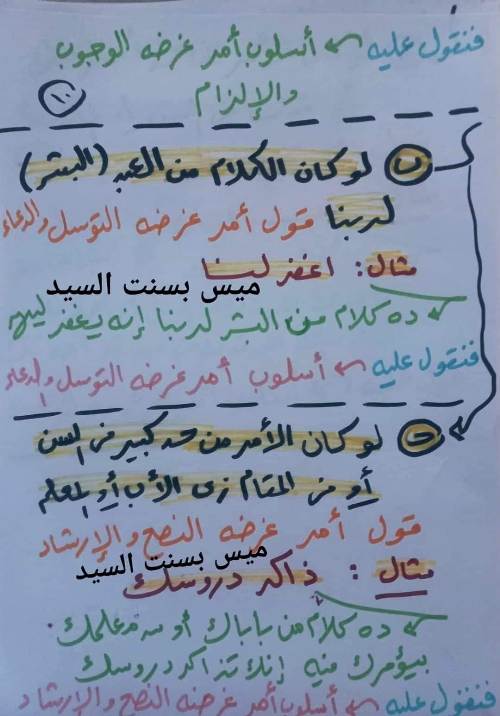 فنقول عليه ← أسلوب أمر غرضه الوجوب
والإلزام
١٠
ب لو كان الكلام من العبد (البشر)
لربنا قول أمر غرضه التوسل والدعاء
مثال: اغفر لنا
ميس بسنت السيد
ده كلام من البشر لربنا إنه يغفر ليهم
فنقول عليه ← أسلوب أمر غرضه التوسل والدعاء
ج لو كان الأمر من حد كبير في السن
أو في المقام زى الأب أو المعلم
قول أمر غرضه النصح والإرشاد
ميس بسنت السيد
مثال: ذاكر دروسك
ده كلام من باباك أو من معلمك
بيؤمرك فيه إنك تذاكر دروسك
فنقول عليه ← أسلوب أمر غرضه النصح والإرشاد